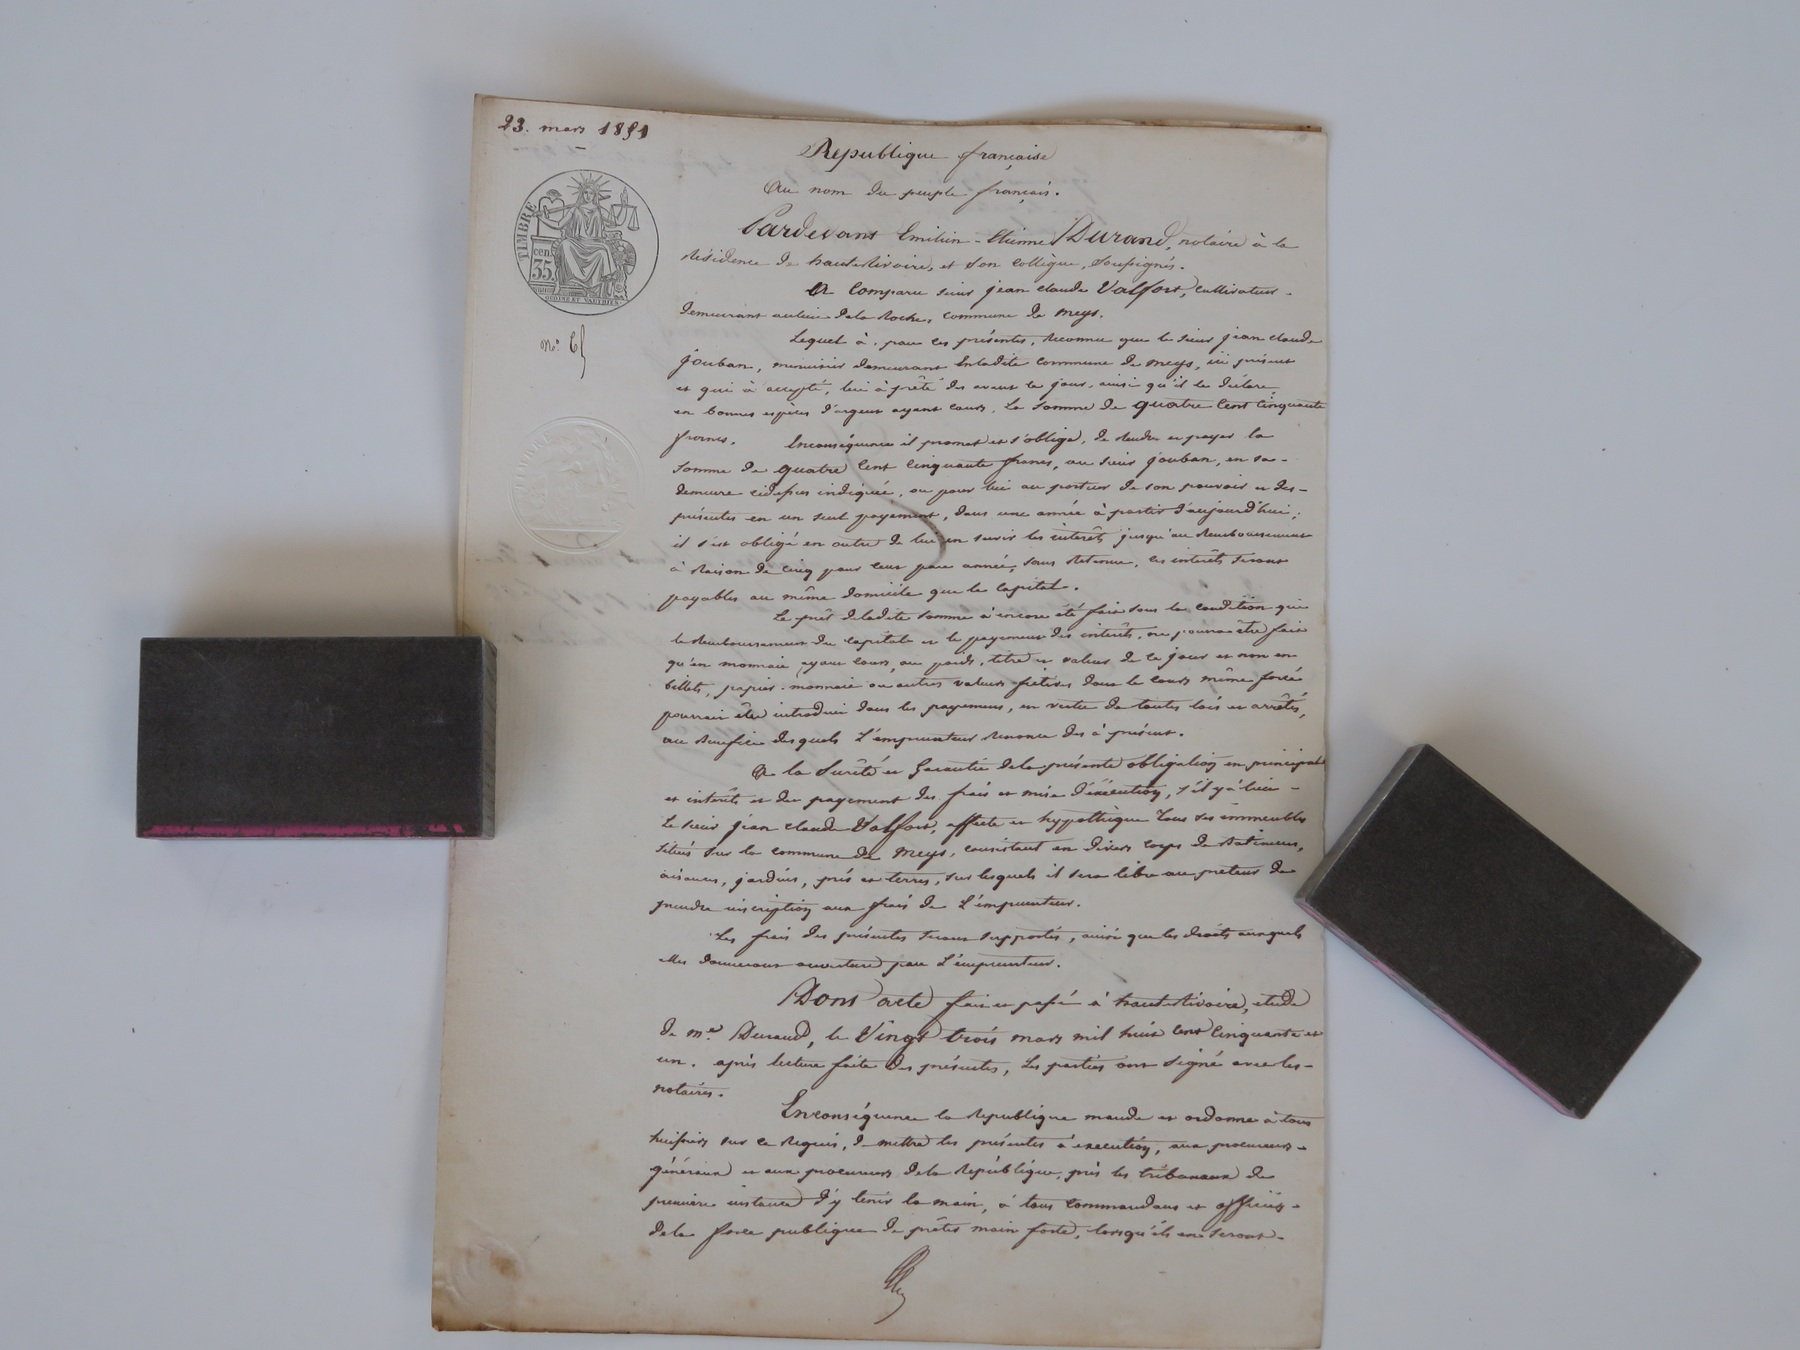 23. mars 1851
Republique française
Au nom du peuple français.
TIMBRE
cen.
35.
Pardevant Emilien-Etienne Durand, notaire à la
Résidence de hauterivoire, et son collègue, soussignés.
A Comparu sieur jean claude Valfort, cultivateur
demeurant au lieu dela Roche, commune de meys.
N°. 65
Lequel à, par ces présentes, Reconnu que le sieur jean claude
jouban, menuisier demeurant enladite commune de meys, ici présent
et qui à accepté, lui à prêté dès avant ce jour, ainsi qu'il le déclare,
en bonnes espèces d'argent ayant cours, La somme de quatre cent cinquante
francs. Enconséquence il promet et s'oblige, de rendre et payer la
somme de quatre cent cinquante francs, au sieur jouban, en sa-
demeure cidessus indiquée, ou pour lui au porteur de son pouvoir et des-
présentes en un seul payement, dans une année à partir d'aujourd'hui;
il s'est obligé en outre de lui en servir les intérêts jusqu'au Remboursement
à Raison de cinq pour cent par année, sans Retenue, ces intérêts seront
payables au même domicile que le capital.
Le prêt deladite somme à encore été fait sous la condition que
le Remboursement du capital et le payement des intérêts, ne pourra être fait
qu'en monnaie ayant cours, au poids, titre et valeur de ce jour et non en
billets, papier-monnaie ou autres valeurs fictives dont le cours même forcé
pourrait être introduit dans les payemens, en vertu de toutes lois et arrêtés,
au Benefice desquels L'emprunteur Renonce dès à présent.
A la Sûreté et Garantie dela présente obligation en principal
et intérêts et du payement des frais et mise d'éxécution, s'il y à lieu-
Le sieur jean claude Valfort, affecte et hypothèque Tous ses immeubles
situés sur la commune de Meys, consistant en divers corps de Batimens,
aisances, jardins, prés et terres, sur lesquels il sera libre au prêteur de
prendre inscription aux frais de L'emprunteur.
Les frais des présentes seront supportés, ainsi que les droits auxquels
elles donneront ouverture par L'emprunteur.
Dont acte fait et passé à hauterivoire, étude
de me. Durand, le Vingt trois mars mil huit cent cinquante et
un. après lecture faite des présentes, Les parties ont signé avec les-
notaires.
Enconséquence la Republique mande et ordonne à tous
huissiers sur ce Requis, de mettre les présentes à execution, aux procureurs-
généraux et aux procureurs dela République, près les tribunaux de
première instance d'y tenir la main, à tous commandans et officiers-
dela force publique de prêter main forte, lorsqu'ils en seront-